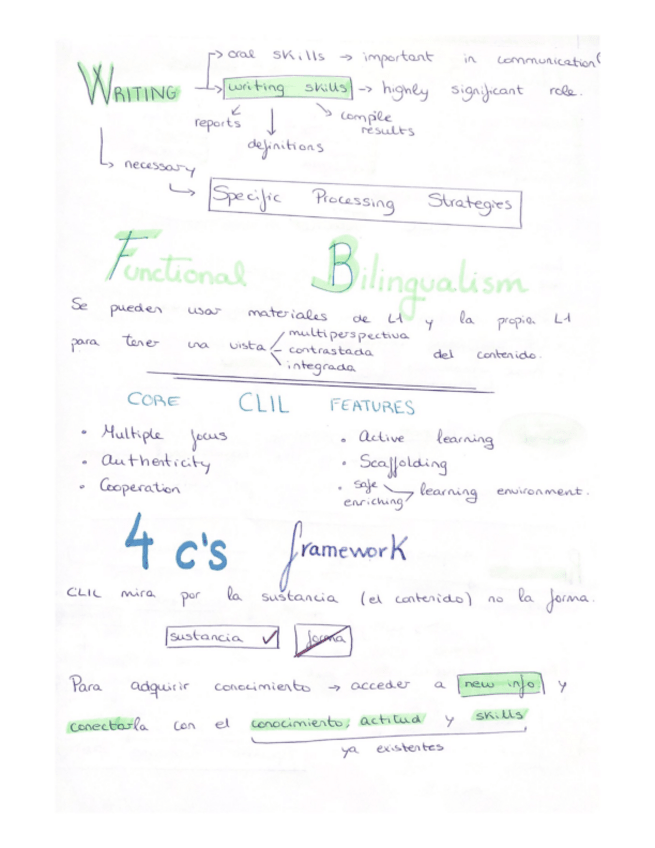 oral skills → important in communication
WRITING → writing skills → highly significant role.
reports compile
results
definitions
necessary
Specific Processing Strategies
Functional Bilingualism
Se pueden usar materiales de L1 y la propia L1
multiperspectiva
para tener una vista contrastada del contenido.
integrada
CORE CLIL FEATURES
• Multiple focus • Active learning
• Authenticity • Scaffolding
• Cooperation • safe learning environment.
enriching
4 c's framework
CLIL mira por la sustancia (el contenido) no la forma.
sustancia ✓ forma
Para adquirir conocimiento → acceder a new info y
conectarla con el conocimiento, actitud y skills
ya existentes